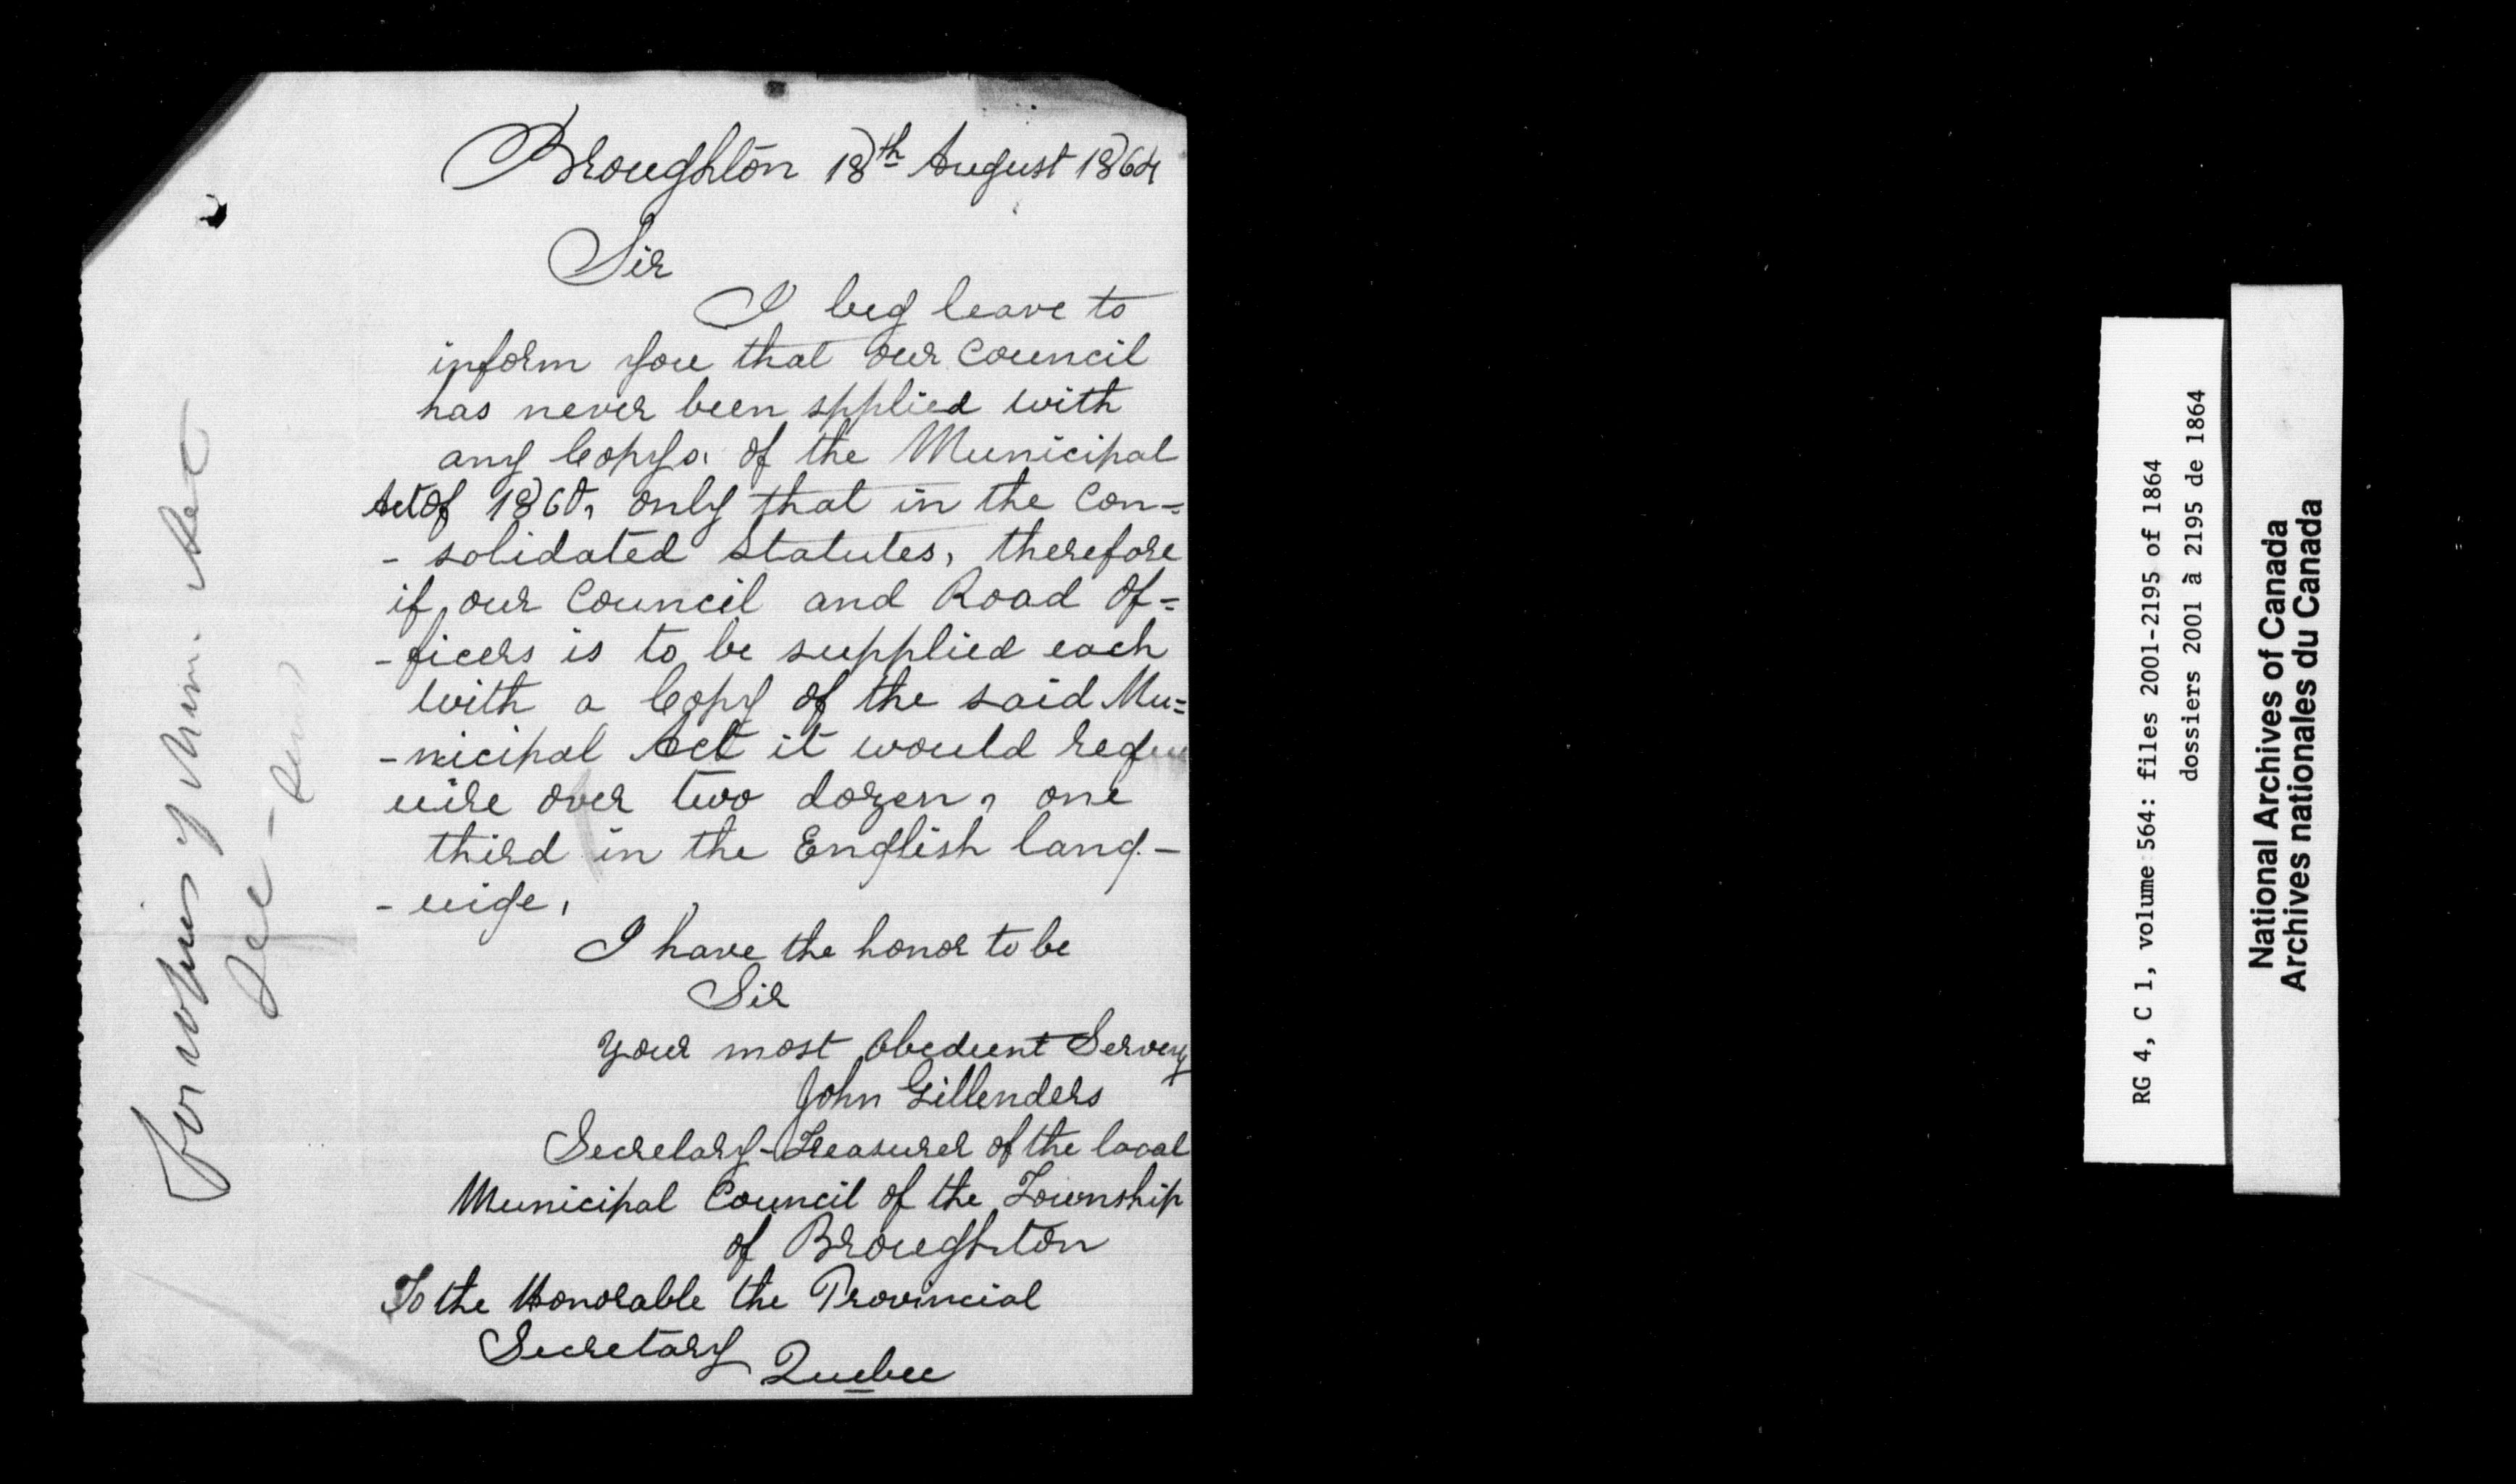 Broughton 18th August 1864
Sir
I beg leave to
inform you that our Council
has never been spplied with
any Copys, of the Municipal
Act of 1860, only that in the Con=
- solidated Statutes, therefore
if our Council and Road Of=
- ficers is to be supplied each
with a Copy of the said Mu=
- nicipal Act it would requ
uire over two dozen, one
third in the English lang-
- uige,
I have the honor to be
Sir
your most Obedient Servent
John Gillenders
Secretary-Treasurer of the local
Municipal Council of the Township
of Broughton
To the Honorable the Provincial
Secretary
Quebec
for copies of Mun. Act
RG 4, C 1, volume 564: files 2001-2195 of 1864
dossiers 2001 à 2195 de 1864
National Archives of Canada
Archives nationales du Canada